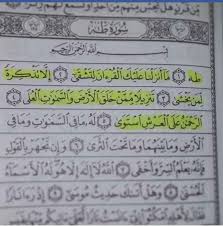 سُورَةُ طه
بِسْمِ اللَّهِ الرَّحْمَٰنِ الرَّحِيمِ
طه ۝١ مَا أَنزَلْنَا عَلَيْكَ الْقُرْءَانَ لِتَشْقَىٰ ۝٢ إِلَّا تَذْكِرَةً
لِّمَن يَخْشَىٰ ۝٣ تَنزِيلًا مِّمَّنْ خَلَقَ الْأَرْضَ وَالسَّمَٰوَٰتِ الْعُلَى ۝٤
الرَّحْمَٰنُ عَلَى الْعَرْشِ اسْتَوَىٰ ۝٥ لَهُ مَا فِي السَّمَٰوَٰتِ وَمَا فِي
الْأَرْضِ وَمَا بَيْنَهُمَا وَمَا تَحْتَ الثَّرَىٰ ۝٦ وَإِن تَجْهَرْ بِالْقَوْلِ
فَإِنَّهُ يَعْلَمُ السِّرَّ وَأَخْفَى ۝٧ اللَّهُ لَا إِلَٰهَ إِلَّا هُوَ لَهُ الْأَسْمَاءُ
الْحُسْنَىٰ ۝٨ وَهَلْ أَتَىٰكَ حَدِيثُ مُوسَىٰ ۝٩ إِذْ رَءَا نَارًا